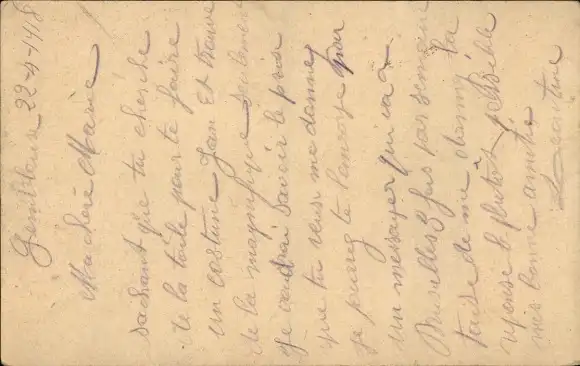 Gembloux 22-4-1918
Ma chère Marie
sachant que tu cherche
de la toile pour te faire
un costume Jean et trouve
de la magnifique seulement
je voudrai savoir le prix
que tu veux me donner
je pourrai te l'envoyé par
un messager qui va a
Bruxelles fois par semaine
tarde de me la
réponse le plutôt possible
mes bonne amitié
Léontine